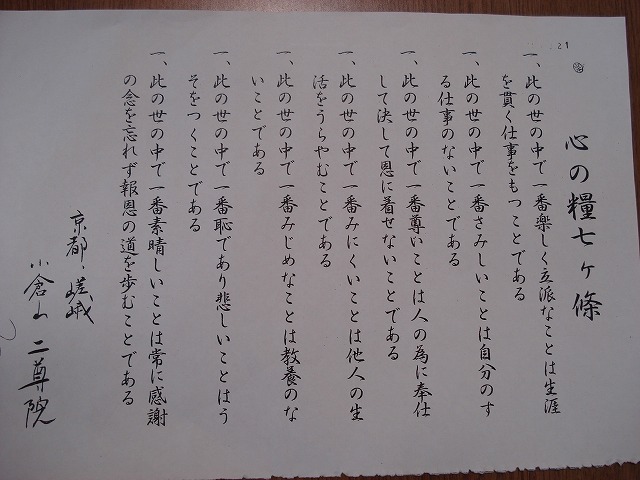 21
心の糧七ヶ條
一、此の世の中で一番楽しく立派なことは生涯
を貫く仕事をもつことである
一、此の世の中で一番さみしいことは自分のす
る仕事のないことである
一、此の世の中で一番尊いことは人の為に奉仕
して決して恩に着せないことである
一、此の世の中で一番みにくいことは他人の生
活をうらやむことである
一、此の世の中で一番みじめなことは教養のな
いことである
一、此の世の中で一番恥であり悲しいことはう
そをつくことである
一、此の世の中で一番素晴しいことは常に感謝
の念を忘れず報恩の道を歩むことである
京都、嵯峨
小倉山 二尊院